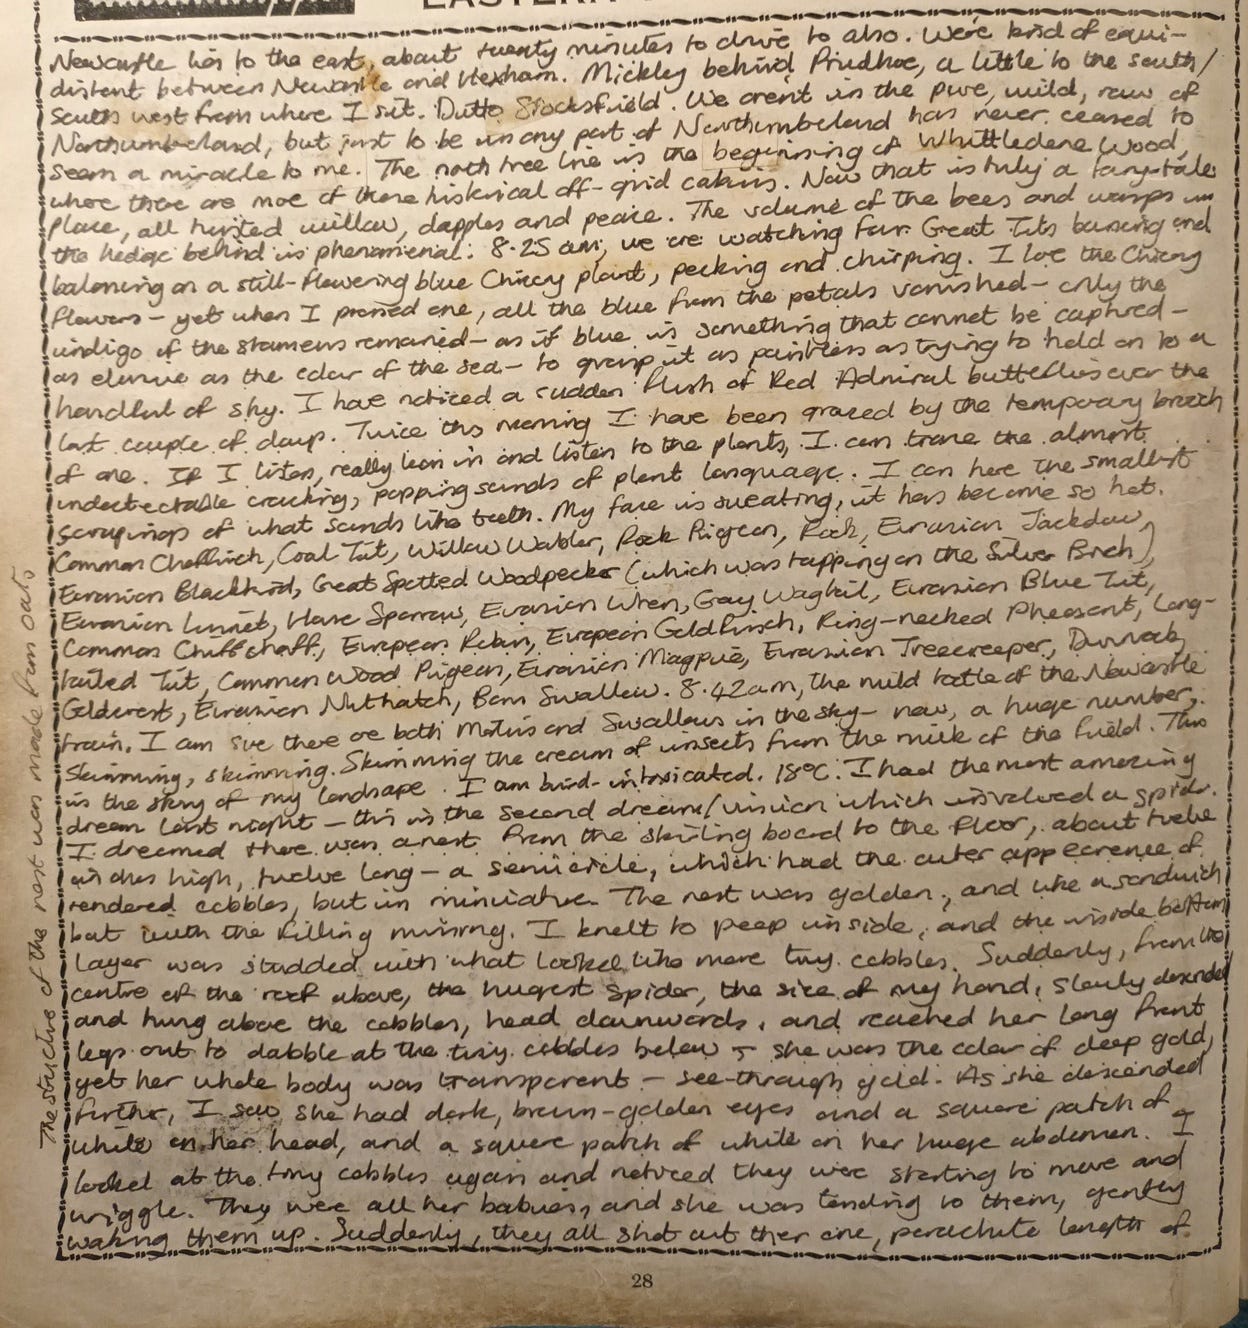 EASTERN
Newcastle lies to the east, about twenty minutes to drive to also. We're kind of equi-
distent between Newcastle and Hexham. Mickley behind Prudhoe, a little to the south/
south west from where I sit. Ditto Stocksfield. We aren't in the pure, wild, raw of
Northumberland, but just to be in any part of Northumberland has never ceased to
seem a miracle to me. The north tree line is the beginning of Whittledene Wood,
where there are more of these historical off-grid cabins. Now that is truly a fairy-tale
place, all twisted willow, dapples and peace. The volume of the bees and wasps in
the hedge behind is phenomenal. 8.25am, we are watching four Great Tits bouncing and
balancing on a still-flowering blue Chicory plant, pecking and chirping. I love the Chicory
flowers – yet when I pressed one, all the blue from the petals vanished – only the
indigo of the stamens remained – as if blue is something that cannot be captured –
as elusive as the colour of the sea – to grasp it as pointless as trying to hold on to a
handful of sky. I have noticed a sudden flush of Red Admiral butterflies over the
last couple of days. Twice this morning I have been graced by the temporary brooch
of one. If I listen, really lean in and listen to the plants, I can trace the almost
undetectable cracking, popping sounds of plant language. I can here the smallest
scrapings of what sounds like teeth. My face is sweating, it has become so hot.
Common Chaffinch, Coal Tit, Willow Warbler, Rock Pigeon, Rook, Eurasian Jackdaw,
Eurasian Blackbird, Great Spotted Woodpecker (which was tapping on the Silver Birch),
Eurasian Linnet, House Sparrow, Eurasian Wren, Gray Wagtail, Eurasian Blue Tit,
Common Chiffchaff, European Robin, European Goldfinch, Ring-necked Pheasant, Long-
tailed Tit, Common Wood Pigeon, Eurasian Magpie, Eurasian Treecreeper, Dunnock,
Goldcrest, Eurasian Nuthatch, Barn Swallow. 8.42am, the mild rattle of the Newcastle
train. I am sure there are both Martins and Swallows in the sky – now, a huge number,
skimming, skimming. Skimming the cream of insects from the milk of the field. This
is the story of my landscape. I am bird-intoxicated. 18°C. I had the most amazing
dream last night – this is the second dream/vision which involved a spider.
I dreamed there was a nest from the skirting board to the floor, about twelve
inches high, twelve long – a semicircle, which had the outer appearance of
rendered cobbles, but in miniature. The nest was golden, and like a sandwich
but with the filling missing. I knelt to peep inside, and the inside bottom
layer was studded with what looked like more tiny cobbles. Suddenly, from the
centre of the roof above, the hugest spider, the size of my hand, slowly descended
and hung above the cobbles, head downwards, and reached her long front
legs out to dabble at the tiny cobbles below – she was the colour of deep gold,
yet her whole body was transparent – see-through gold. As she descended
further, I saw she had dark, brown-golden eyes and a square patch of
white on her head, and a square patch of white on her huge abdomen. I
looked at the tiny cobbles again and noticed they were starting to move and
wriggle. They were all her babies, and she was tending to them, gently
waking them up. Suddenly, they all shot out their one, parachute length of
The structure of the nest was made from oats
28